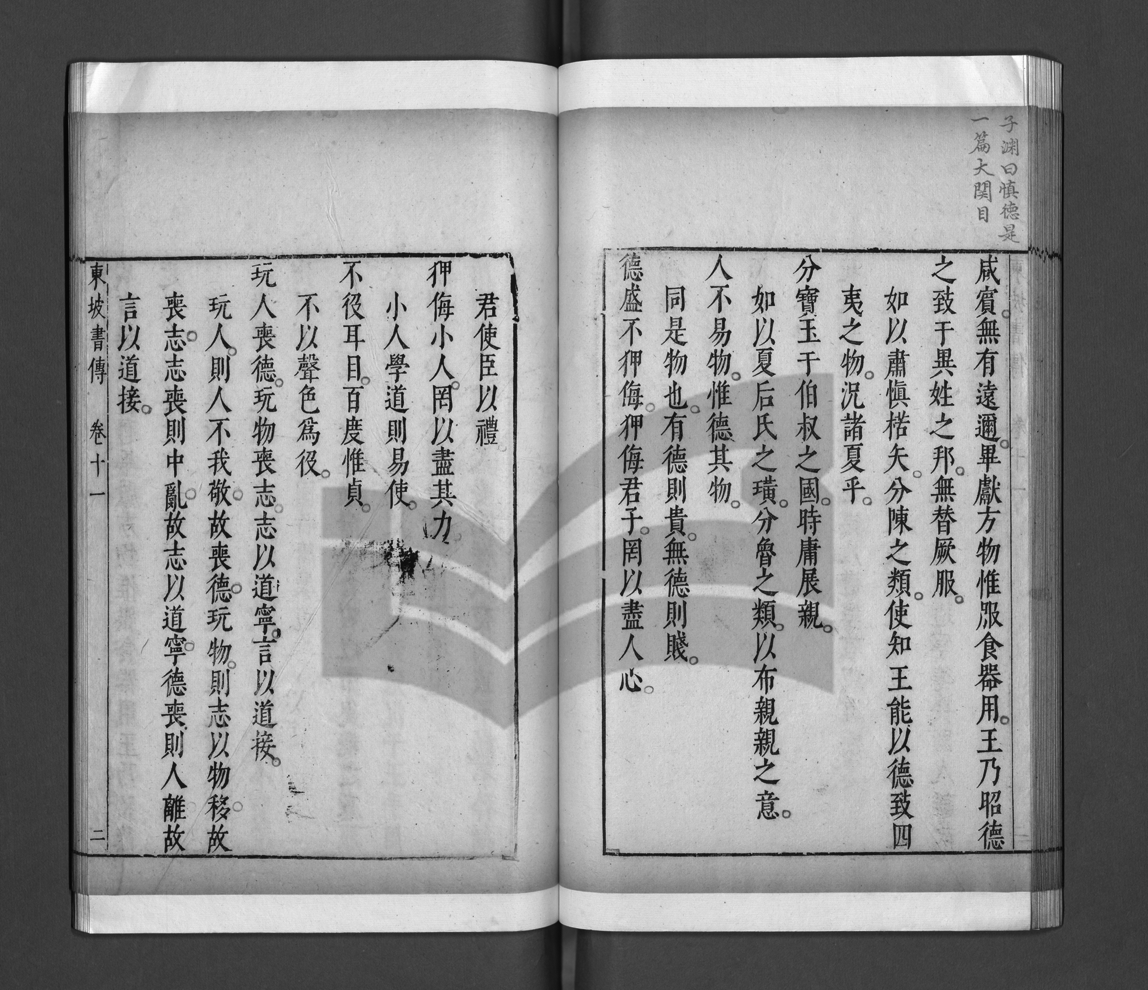 子渊曰慎德是
一篇大関目
咸賔無有遠邇畢獻方物惟服食器用王乃昭德
之致于異姓之邦無替厥服
如以肅愼楛矢分陳之類使知王能以德致四
夷之物況諸夏乎
分寶玉于伯叔之國時庸展親
如以夏后氏之璜分魯之類以布親親之意
人不易物惟德其物
同是物也有德則貴無德則賤
德盛不狎侮狎侮君子罔以盡人心
君使臣以禮
狎侮小人罔以盡其力
小人學道則易使
不役耳目百度惟貞
不以聲色爲役
玩人喪德玩物喪志志以道寧言以道接
玩人則人不我敬故喪德玩物則志以物移故
喪志志喪則中亂故志以道寧德喪則人離故
言以道接
東坡書傳 卷十一 二